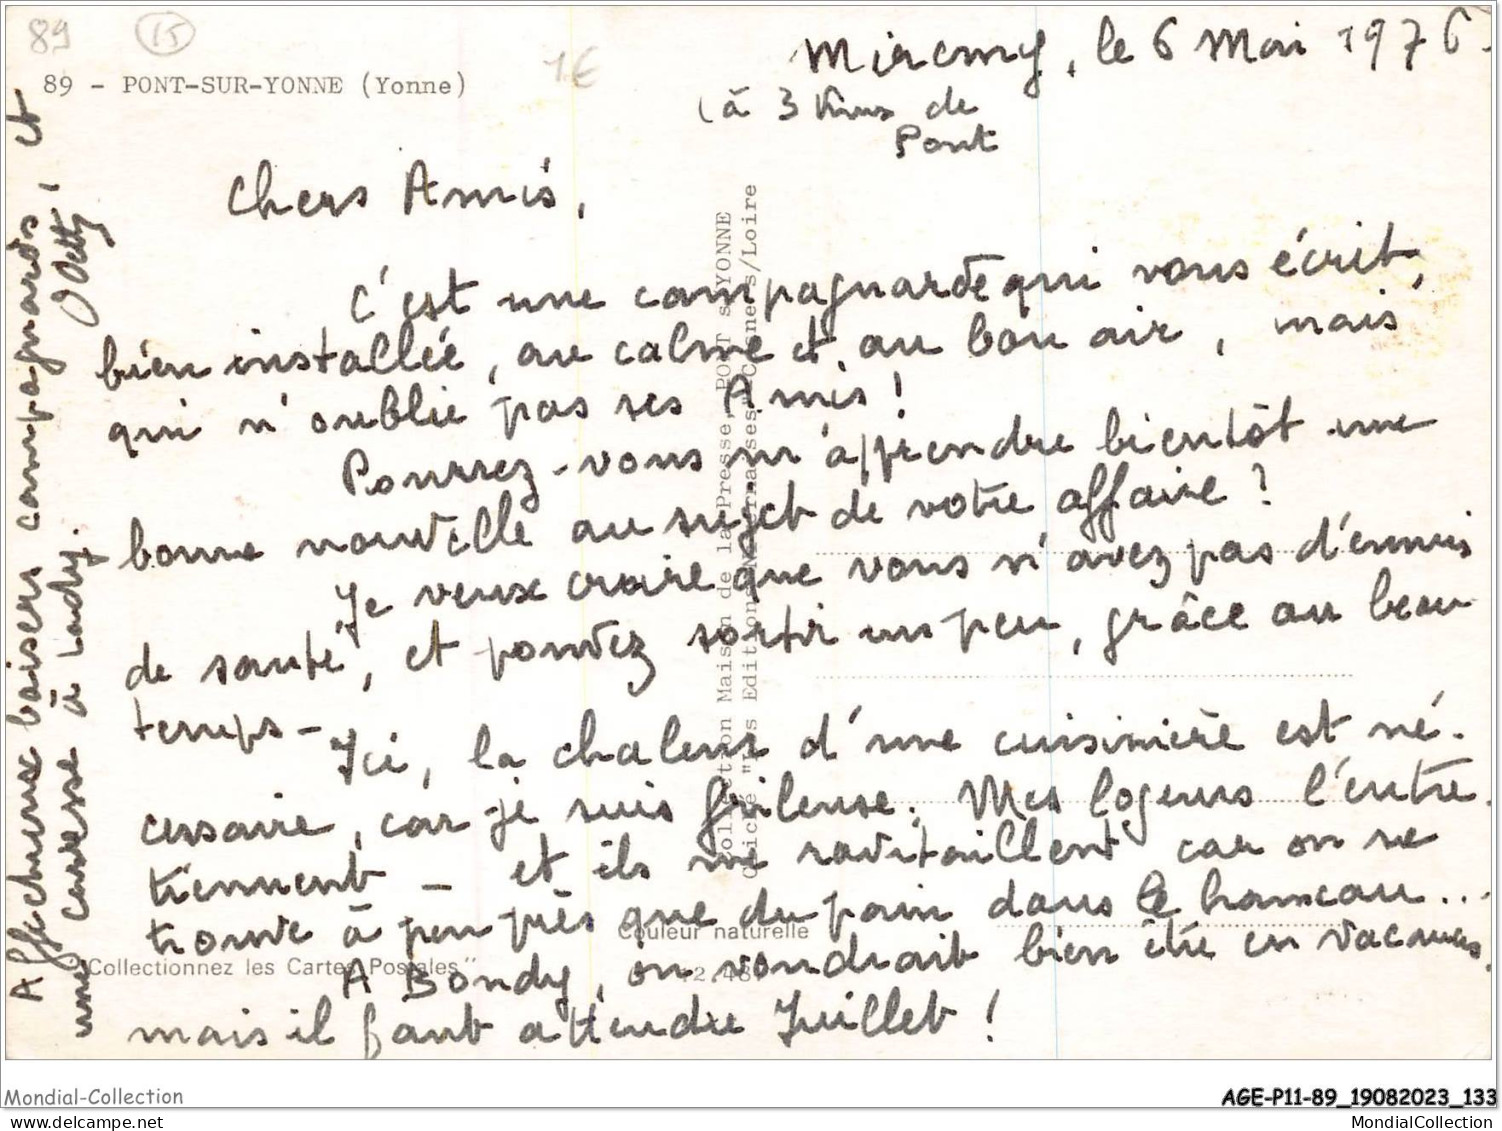 89
15
1€
89 - PONT-SUR-YONNE (Yonne)
le 6 Mai 1976.
(à 3 Kms de
Pont
Chers Amis,
C'est une campagnarde qui vous écrit,
bien installée, au calme et au bon air, mais
qui n'oublie pas ses Amis!
Pourrez-vous m'apprendre bientôt une
bonne nouvelle au sujet de votre affaire?
Je veux croire que vous n'avez pas d'ennuis
de santé, et pouvez sortir un peu, grâce au beau
temps -
Ici, la chaleur d'une cuisinière est né-
cessaire, car je suis frileuse. Mes logeurs l'entre-
tiennent - et ils me ravitaillent car on ne
trouve à peu près que du pain dans le hameau...
A Bondy, on voudrait bien être en vacances,
mais il faut attendre Juillet!
Affectueux baisers campagnards, et
une caresse à
Odette
Collection Maison de la Presse PONT s/YONNE
"Collectionnez les Cartes Postales"
Couleur naturelle
Mondial-Collection
AGE-P11-89_19082023_133
www.mondial-collection.delcampe.net
MondialCollection